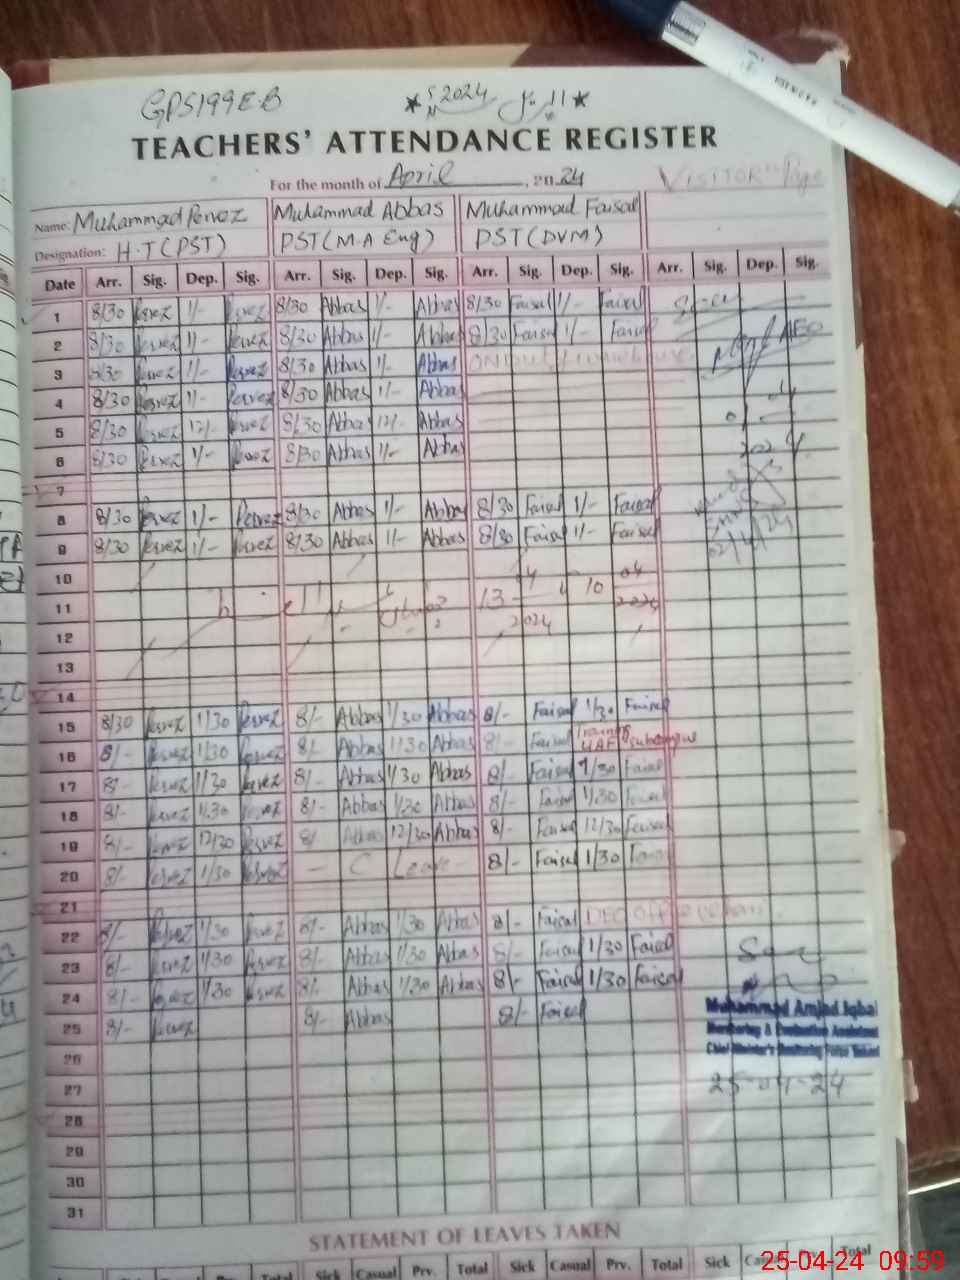 GPS199EB
2024
TEACHERS' ATTENDANCE REGISTER
For the month of April, 2024
VISITOR" Page
Name: Muhammad Pervez Muhammad Abbas Muhammad Faisal
Designation: H.T(PST) PST(M.A Eng) PST(DVM)
Date Arr. Sig. Dep. Sig. Arr. Sig. Dep. Sig. Arr. Sig. Dep. Sig. Arr. Sig. Dep. Sig.
1 8/30 Pervez 1/- Pervez 8/30 Abbas 1/- Abbas 8/30 Faisal 1/- Faisal
2 8/30 Pervez 1/- Pervez 8/30 Abbas 1/- Abbas 8/30 Faisal 1/- Faisal
3 8/30 Pervez 1/- Pervez 8/30 Abbas 1/- Abbas
4 8/30 Pervez 1/- Pervez 8/30 Abbas 1/- Abbas
5 8/30 Pervez 12/- Pervez 8/30 Abbas 12/- Abbas
6 8/30 Pervez 1/- Pervez 8/30 Abbas 1/- Abbas
7
8 8/30 Pervez 1/- Pervez 8/30 Abbas 1/- Abbas 8/30 Faisal 1/- Faisal
9 8/30 Pervez 1/- Pervez 8/30 Abbas 1/- Abbas 8/30 Faisal 1/- Faisal
10
11
12
13
14
15 8/30 Pervez 1/30 Pervez 8/- Abbas 1/30 Abbas 8/- Faisal 1/30 Faisal
16 8/- Pervez 1/30 Pervez 8/- Abbas 1/30 Abbas 8/- Faisal Training UAF subcampus
17 8/- Pervez 1/30 Pervez 8/- Abbas 1/30 Abbas 8/- Faisal 1/30 Faisal
18 8/- Pervez 1/30 Pervez 8/- Abbas 1/30 Abbas 8/- Faisal 1/30 Faisal
19 8/- Pervez 12/30 Pervez 8/- Abbas 12/30 Abbas 8/- Faisal 12/30 Faisal
20 8/- Pervez 1/30 Pervez — C Leave - 8/- Faisal 1/30 Faisal
21
22 8/- Pervez 1/30 Pervez 8/- Abbas 1/30 Abbas 8/- Faisal DEO office
23 8/- Pervez 1/30 Pervez 8/- Abbas 1/30 Abbas 8/- Faisal 1/30 Faisal
24 8/- Pervez 1/30 Pervez 8/- Abbas 1/30 Abbas 8/- Faisal 1/30 Faisal
25 8/- Pervez 8/- Abbas 8/- Faisal
Muhammad Amjad Iqbal
Monitoring & Evaluation Assistant
Chief Minister's Monitoring Force
26
27 25-04-24
28
29
30
31
STATEMENT OF LEAVES TAKEN
Total Sick Casual Prv. Total Sick Casual Prv. Total Sick Casual Prv. Total
25-04-24 09:59